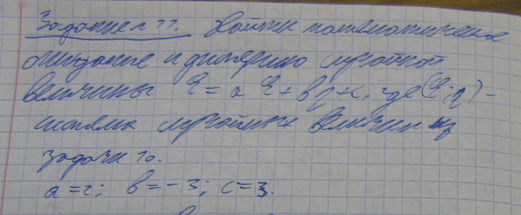 Задание № 11. Найти математическое
ожидание и дисперсию случайной
величины ξ = a ξ + b η + c, где (ξ; η) -
система случайных величин из
задачи 10.
a = 2; b = -3; c = 3.